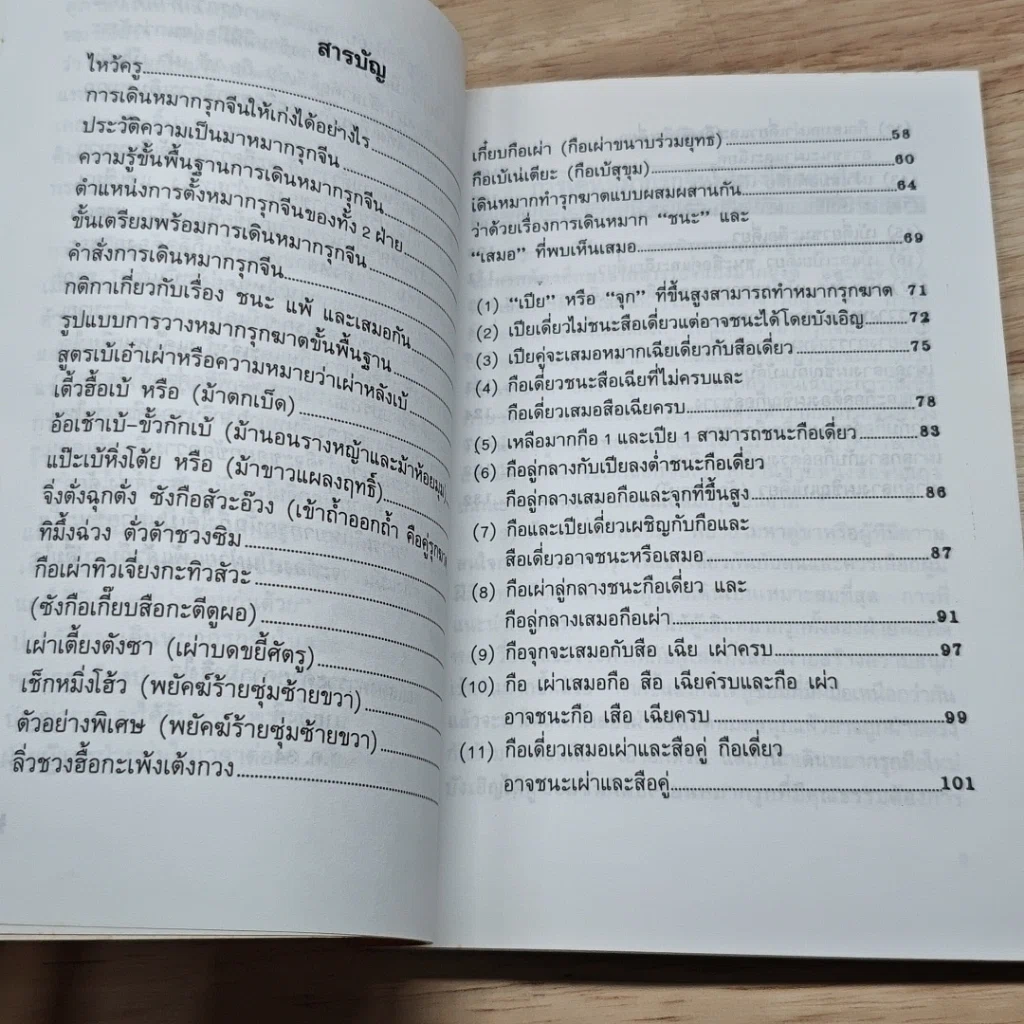 สารบัญ
ไหว้ครู
การเดินหมากรุกจีนให้เก่งได้อย่างไร
ประวัติความเป็นมาหมากรุกจีน
ความรู้ขั้นพื้นฐานการเดินหมากรุกจีน
ตำแหน่งการตั้งหมากรุกจีนของทั้ง 2 ฝ่าย
ขั้นเตรียมพร้อมการเดินหมากรุกจีน
คำสั่งการเดินหมากรุกจีน
กติกาเกี่ยวกับเรื่อง ชนะ แพ้ และเสมอกัน
รูปแบบการวางหมากรุกฆาตขั้นพื้นฐาน
สูตรเบ้เอ๋าเผ่าหรือความหมายว่าเผ่าหลังเบ้
เตี้วฮื้อเบ้ หรือ (ม้าตกเบ็ด)
อ้อเช้าเบ้-ขั้วกักเบ้ (ม้านอนรางหญ้าและม้าห้อยมุม)
แป๊ะเบ้หิ่งโต้ย หรือ (ม้าขาวแผลงฤทธิ์)
จิ่งตั่งฉุกตั่ง ซังกือสัวะอ๊วง (เข้าถ้ำออกถ้ำ คือคู่รุกฆาต
ทิมึ้งฉ่วง ตั่วด้าชวงซิม
กือเผ่าทิวเจี่ยงกะทิวสัวะ
(ซังกือเกี๊ยบสือกะตีตูผอ)
เผ่าเตี้ยงตังซา (เผ่าบดขยี้ศัตรู)
เช็กหมิ่งโฮ้ว (พยัคฆ์ร้ายซุ่มซ้ายขวา)
ตัวอย่างพิเศษ (พยัคฆ์ร้ายซุ่มซ้ายขวา)
ลิ่วชวงฮื้อกะเพ้งเต้งกวง
เกี๊ยบกือเผ่า (กือเผ่าขนาบร่วมยุทธ) 58
กือเบ้เน่เตียะ (กือเบ้สุขุม) 60
เดินหมากทำรุกฆาตแบบผสมผสานกัน 64
ว่าด้วยเรื่องการเดินหมาก “ชนะ” และ
“เสมอ” ที่พบเห็นเสมอ 69
(1) “เปีย” หรือ “จุก” ที่ขึ้นสูงสามารถทำหมากรุกฆาต 71
(2) เปียเดี่ยวไม่ชนะสือเดี่ยวแต่อาจชนะได้โดยบังเอิญ 72
(3) เปียคู่จะเสมอหมากเฉียเดี่ยวกับสือเดี่ยว 75
(4) กือเดี่ยวชนะสือเฉียที่ไม่ครบและ
กือเดี่ยวเสมอสือเฉียครบ 78
(5) เหลือมากกือ 1 และเปีย 1 สามารถชนะกือเดี่ยว 83
(6) กือลู่กลางกับเปียลงต่ำชนะกือเดี่ยว
กือลู่กลางเสมอกือและจุกที่ขึ้นสูง 86
(7) กือและเปียเดี่ยวเผชิญกับกือและ
สือเดี่ยวอาจชนะหรือเสมอ 87
(8) กือเผ่าลู่กลางชนะกือเดี่ยว และ
กือลู่กลางเสมอกือเผ่า 91
(9) กือจุกจะเสมอกับสือ เฉีย เผ่าครบ 97
(10) กือ เผ่าเสมอกือ สือ เฉียครบและกือ เผ่ว
อาจชนะกือ เสือ เฉียครบ 99
(11) กือเดี่ยวเสมอเผ่าและสือคู่ กือเดี่ยว
อาจชนะเผ่าและสือคู่ 101